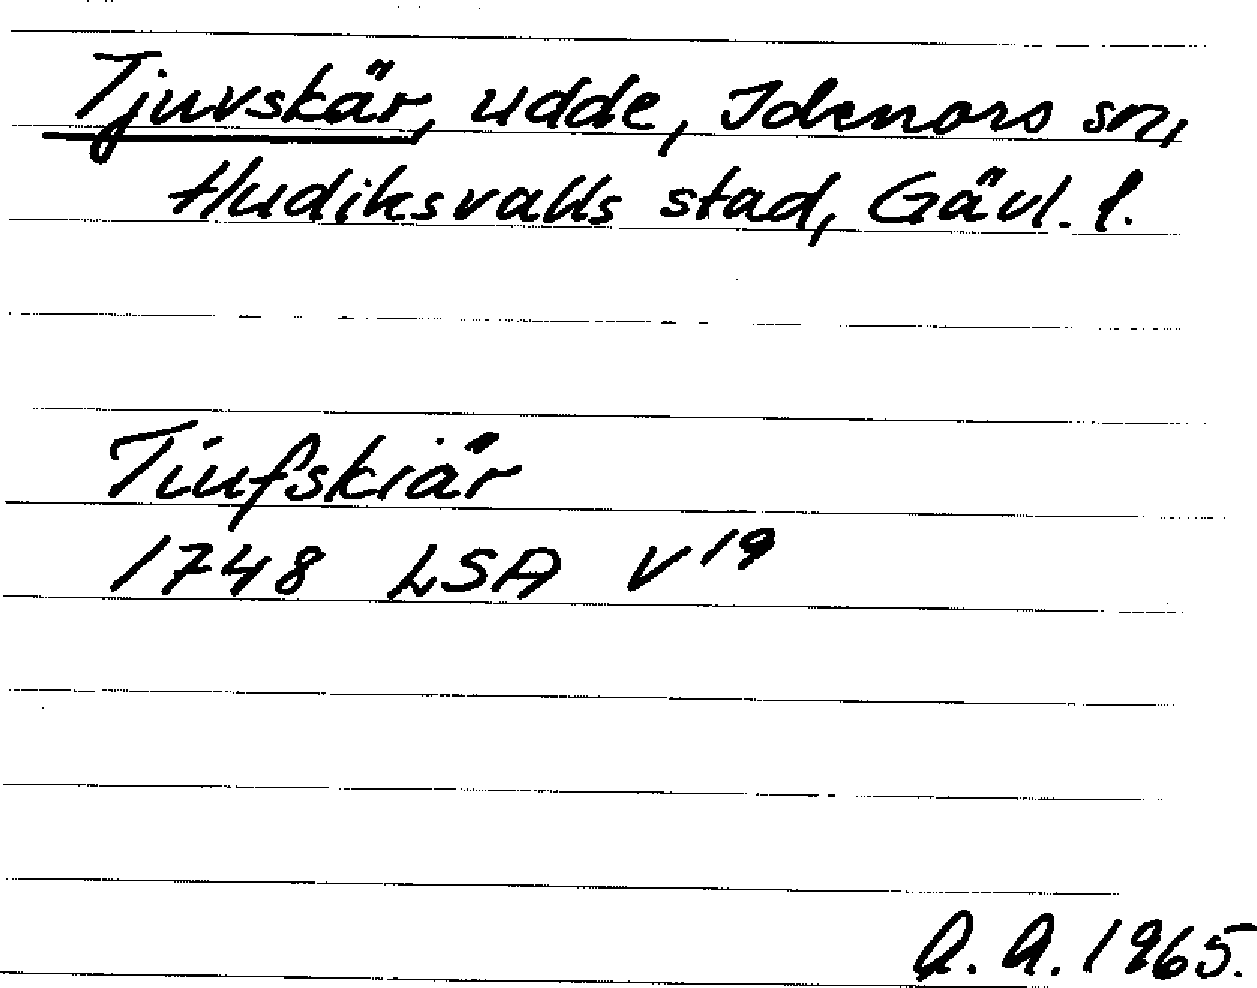 Tjuvskär, udde, Idenors sn,
Hudiksvalls stad, Gävl. l.
Tiufskiär
1748 LSA V¹⁹
A. A. 1965.